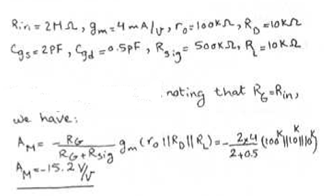 Rin = 2MΩ, gm = 4mA/v, ro = 100kΩ, RD = 10kΩ
Cgs = 2PF, Cgd = 0.5PF, Rsig = 500kΩ, RL = 10kΩ
noting that RG = Rin,
we have:
AM = - RG / (RG + Rsig) gm (ro || RD || RL) = - 2x4 / (2+0.5) (100K || 10K || 10K)
AM = -15.2 V/V